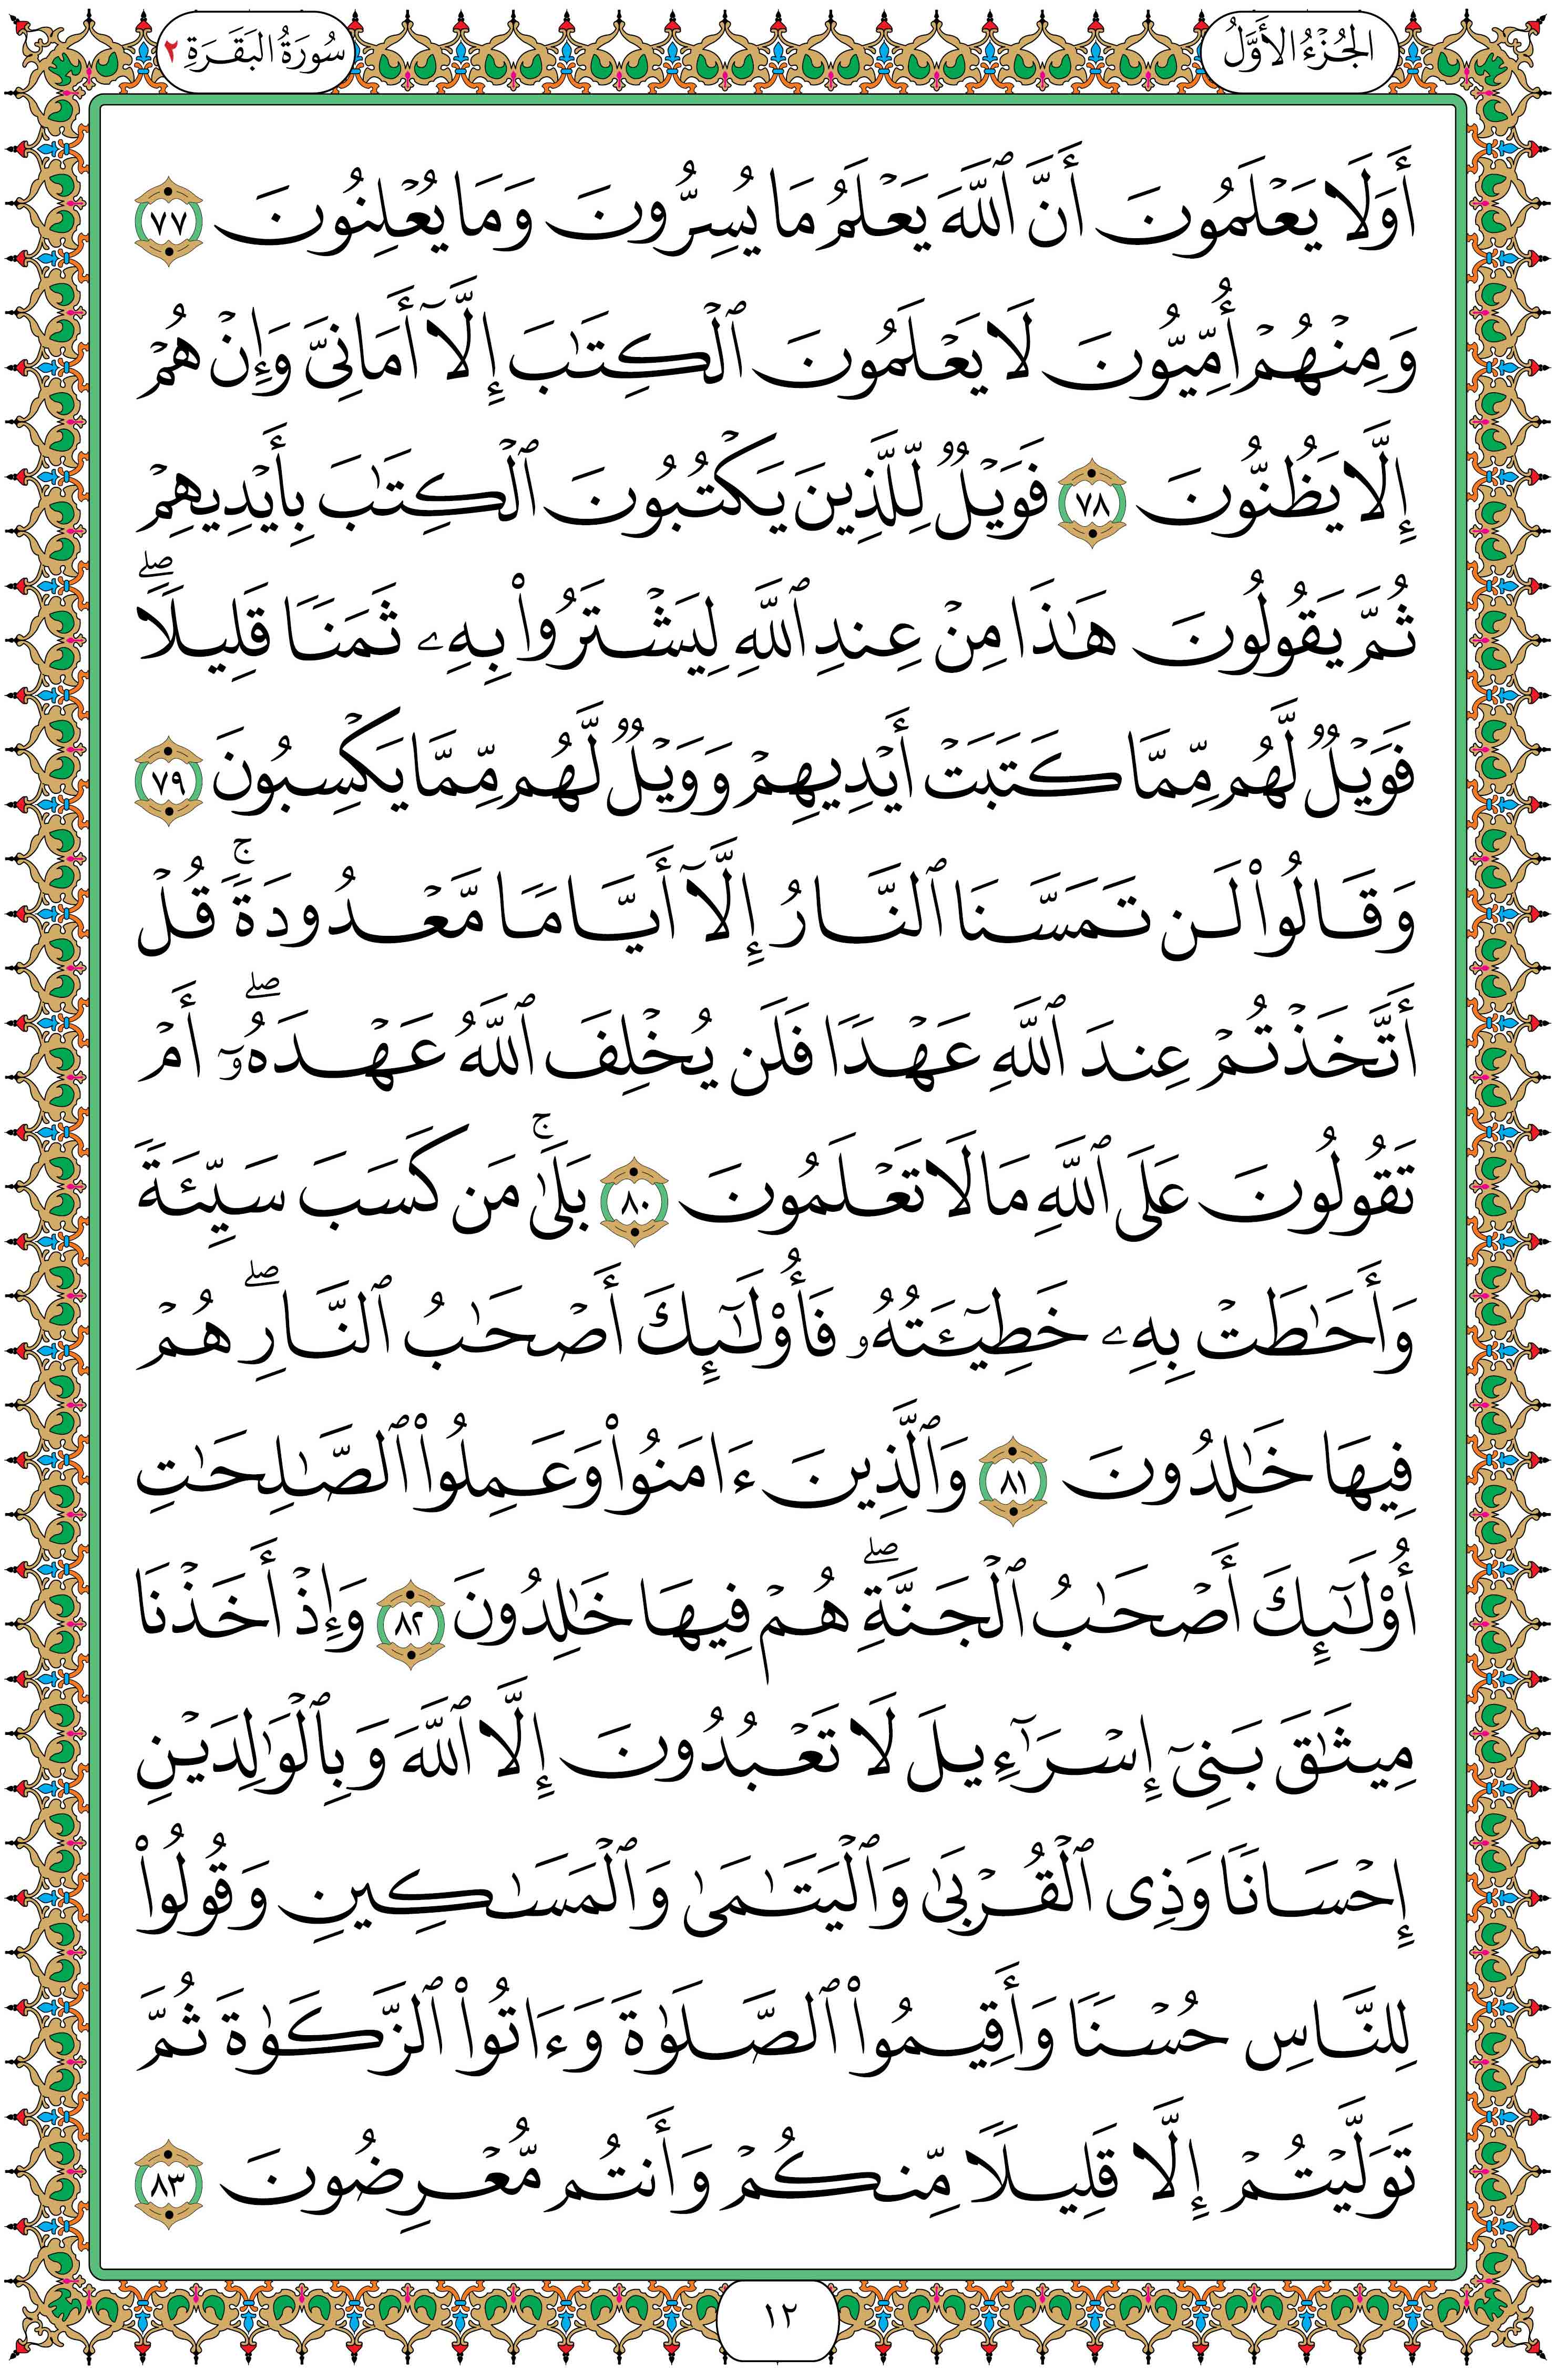 الجُزْءُ الأَوَّلُ
سُورَةُ البَقَرَةِ ٢
أَوَلَا يَعْلَمُونَ أَنَّ ٱللَّهَ يَعْلَمُ مَا يُسِرُّونَ وَمَا يُعْلِنُونَ ٧٧
وَمِنْهُمْ أُمِّيُّونَ لَا يَعْلَمُونَ ٱلْكِتَٰبَ إِلَّآ أَمَانِىَّ وَإِنْ هُمْ
إِلَّا يَظُنُّونَ ٧٨ فَوَيْلٌ لِّلَّذِينَ يَكْتُبُونَ ٱلْكِتَٰبَ بِأَيْدِيهِمْ
ثُمَّ يَقُولُونَ هَٰذَا مِنْ عِندِ ٱللَّهِ لِيَشْتَرُوا۟ بِهِۦ ثَمَنًا قَلِيلًا ۖ
فَوَيْلٌ لَّهُم مِّمَّا كَتَبَتْ أَيْدِيهِمْ وَوَيْلٌ لَّهُم مِّمَّا يَكْسِبُونَ ٧٩
وَقَالُوا۟ لَن تَمَسَّنَا ٱلنَّارُ إِلَّآ أَيَّامًا مَّعْدُودَةً ۚ قُلْ
أَتَّخَذْتُمْ عِندَ ٱللَّهِ عَهْدًا فَلَن يُخْلِفَ ٱللَّهُ عَهْدَهُۥٓ ۖ أَمْ
تَقُولُونَ عَلَى ٱللَّهِ مَا لَا تَعْلَمُونَ ٨٠ بَلَىٰ ۚ مَن كَسَبَ سَيِّئَةً
وَأَحَٰطَتْ بِهِۦ خَطِيٓـَٔتُهُۥ فَأُو۟لَٰٓئِكَ أَصْحَٰبُ ٱلنَّارِ ۖ هُمْ
فِيهَا خَٰلِدُونَ ٨١ وَٱلَّذِينَ ءَامَنُوا۟ وَعَمِلُوا۟ ٱلصَّٰلِحَٰتِ
أُو۟لَٰٓئِكَ أَصْحَٰبُ ٱلْجَنَّةِ ۖ هُمْ فِيهَا خَٰلِدُونَ ٨٢ وَإِذْ أَخَذْنَا
مِيثَٰقَ بَنِىٓ إِسْرَٰٓءِيلَ لَا تَعْبُدُونَ إِلَّا ٱللَّهَ وَبِٱلْوَٰلِدَيْنِ
إِحْسَانًا وَذِى ٱلْقُرْبَىٰ وَٱلْيَتَٰمَىٰ وَٱلْمَسَٰكِينِ وَقُولُوا۟
لِلنَّاسِ حُسْنًا وَأَقِيمُوا۟ ٱلصَّلَوٰةَ وَءَاتُوا۟ ٱلزَّكَوٰةَ ثُمَّ
تَوَلَّيْتُمْ إِلَّا قَلِيلًا مِّنكُمْ وَأَنتُم مُّعْرِضُونَ ٨٣
١٢